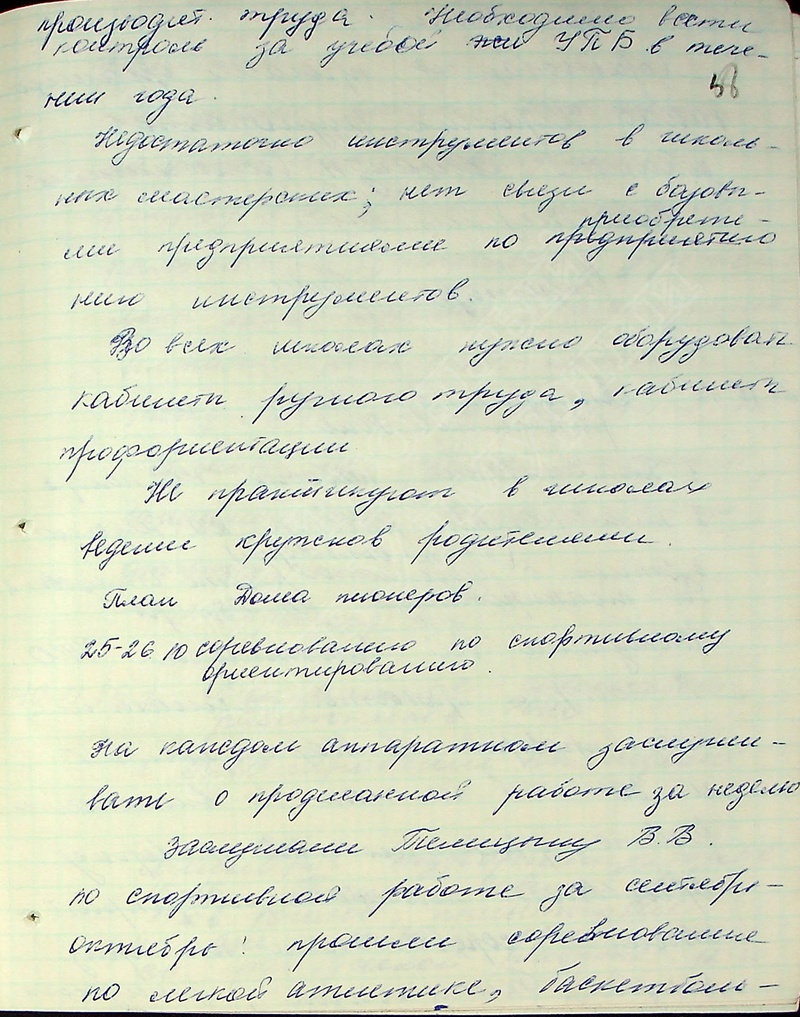 производит. труда. Необходимо вести
контроль за учебой УПБ в тече-
нии года.
58
Недостаточно инструментов в школь-
ных мастерских; нет связи с базовы-
приобрете-
ми предприятиями по предприятию
нию инструментов.
Во всех школах нужно оборудовать
кабинеты ручного труда, кабинеты
профориентации
Не практикуют в школах
ведение кружков родителями.
План Дома пионеров.
25-26.10 соревнованию по спортивному
ориентированию.
На каждом аппаратном заслуши-
вать о проделанной работе за неделю
Заслушали Темицыну В.В.
по спортивной работе за сентябрь-
октябрь: прошли соревнование
по легкой атлетике, баскетболь-